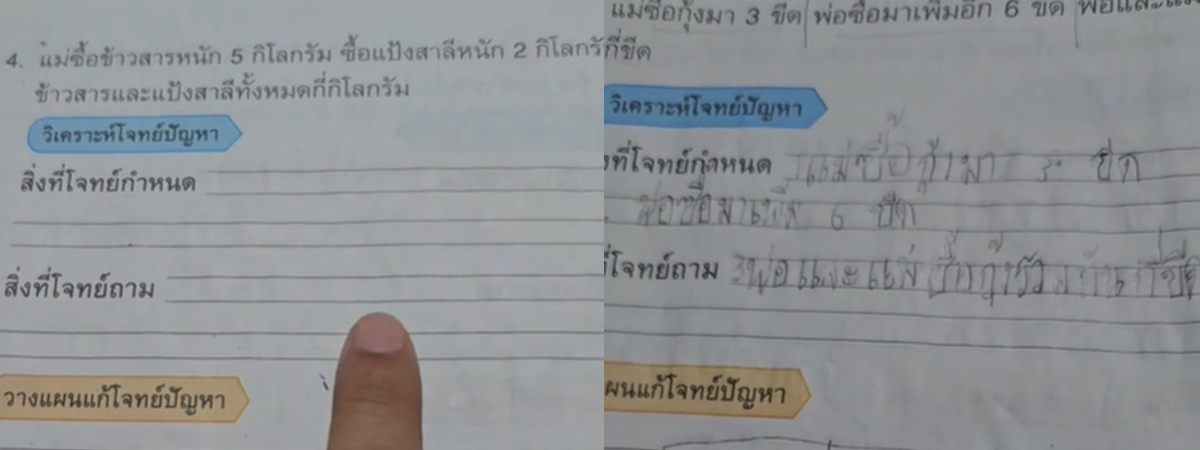 4. แม่ซื้อข้าวสารหนัก 5 กิโลกรัม ซื้อแป้งสาลีหนัก 2 กิโลกรั
ข้าวสารและแป้งสาลีทั้งหมดกี่กิโลกรัม
วิเคราะห์โจทย์ปัญหา
สิ่งที่โจทย์กำหนด
สิ่งที่โจทย์ถาม
วางแผนแก้โจทย์ปัญหา
แม่ซื้อกุ้งมา 3 ขีด พ่อซื้อมาเพิ่มอีก 6 ขีด พ่อและแม่
กี่ขีด
วิเคราะห์โจทย์ปัญหา
ที่โจทย์กำหนด แม่ซื้อกุ้งมา 3 ขีด
พ่อซื้อมาเพิ่ม 6 ขีด
ที่โจทย์ถาม พ่อและแม่ซื้อกุ้งรวมกันกี่ขีด
ผนแก้โจทย์ปัญหา